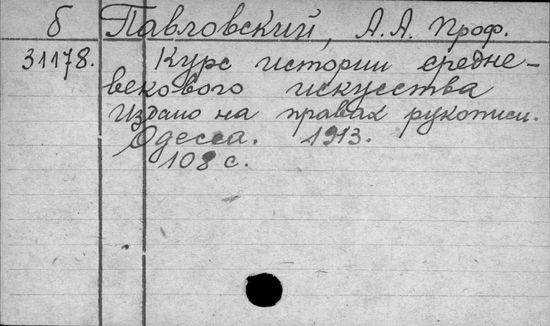 б Павловский, А.А. проф.
31178. Курс истории средне-
векового искусства
Издано на правах рукописи.
Одесса. 1913.
108 с.